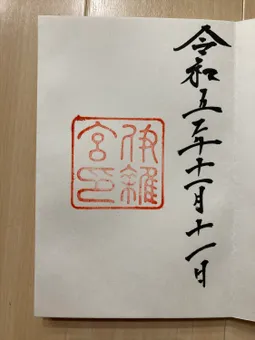 令和五年十一月十一日
伊雜
宮印